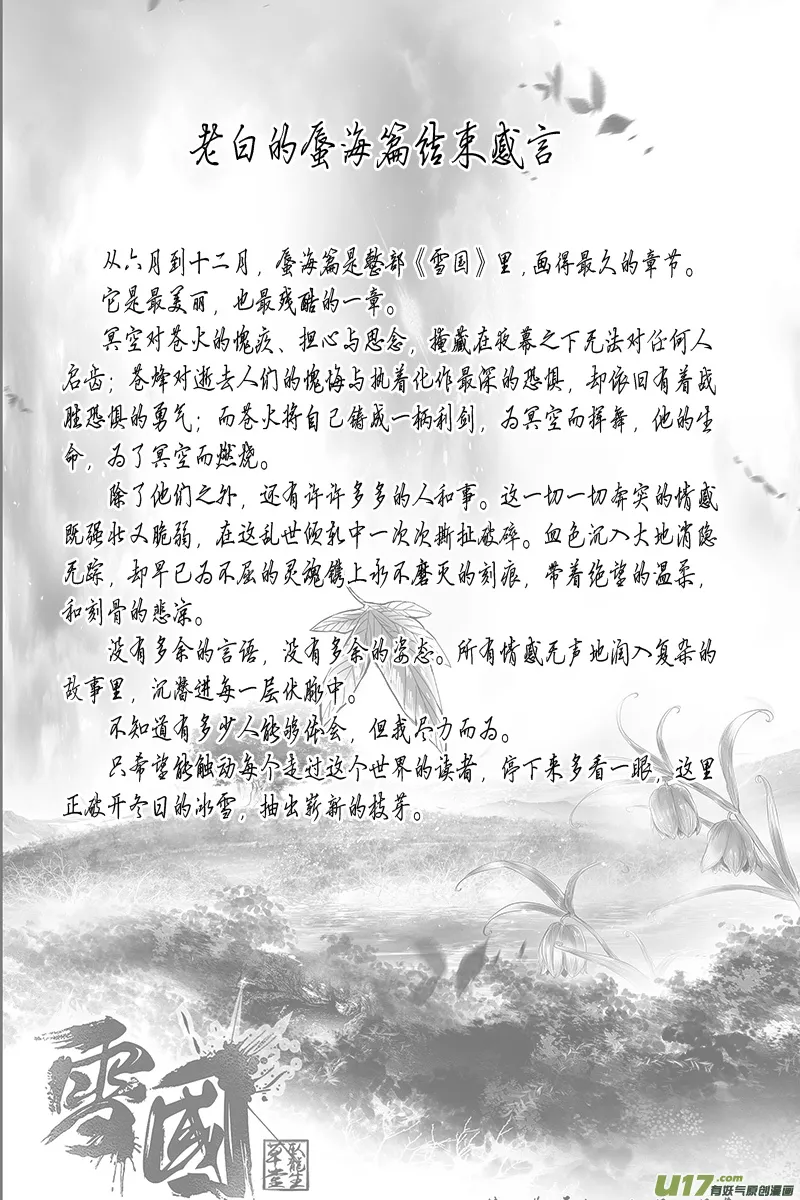 老白的蜃海篇结束感言
从六月到十二月，蜃海篇是整部《雪国》里，画得最久的章节。
它是最美丽，也最残酷的一章。
冥空对苍火的愧疚、担心与思念，掩藏在夜幕之下无法对任何人
启齿；苍烽对逝去人们的愧悔与执着化作最深的恐惧，却依旧有着战
胜恐惧的勇气；而苍火将自己铸成一柄利剑，为冥空而挥舞，他的生
命，为了冥空而燃烧。
除了他们之外，还有许许多多的人和事。这一切一切奔突的情感
既强壮又脆弱，在这乱世倾轧中一次次撕扯破碎。血色沉入大地消隐
无踪，却早已为不屈的灵魂镌上永不磨灭的刻痕，带着绝望的温柔，
和刻骨的悲凉。
没有多余的言语，没有多余的姿态。所有情感无声地润入复杂的
故事里，沉潜进每一层伏脉中。
不知道有多少人能够体会，但我尽力而为。
只希望能触动每个走过这个世界的读者，停下来多看一眼，这里
正破开冬日的冰雪，抽出崭新的枝芽。
雪國
臥龍生
草堂
U17.com
有妖气原创漫画